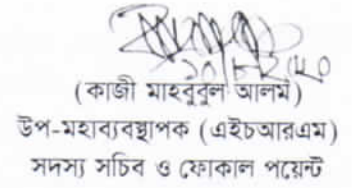 (কাজী মাহবুবুল আলম)
উপ-মহাব্যবস্থাপক (এইচআরএম)
সদস্য সচিব ও ফোকাল পয়েন্ট